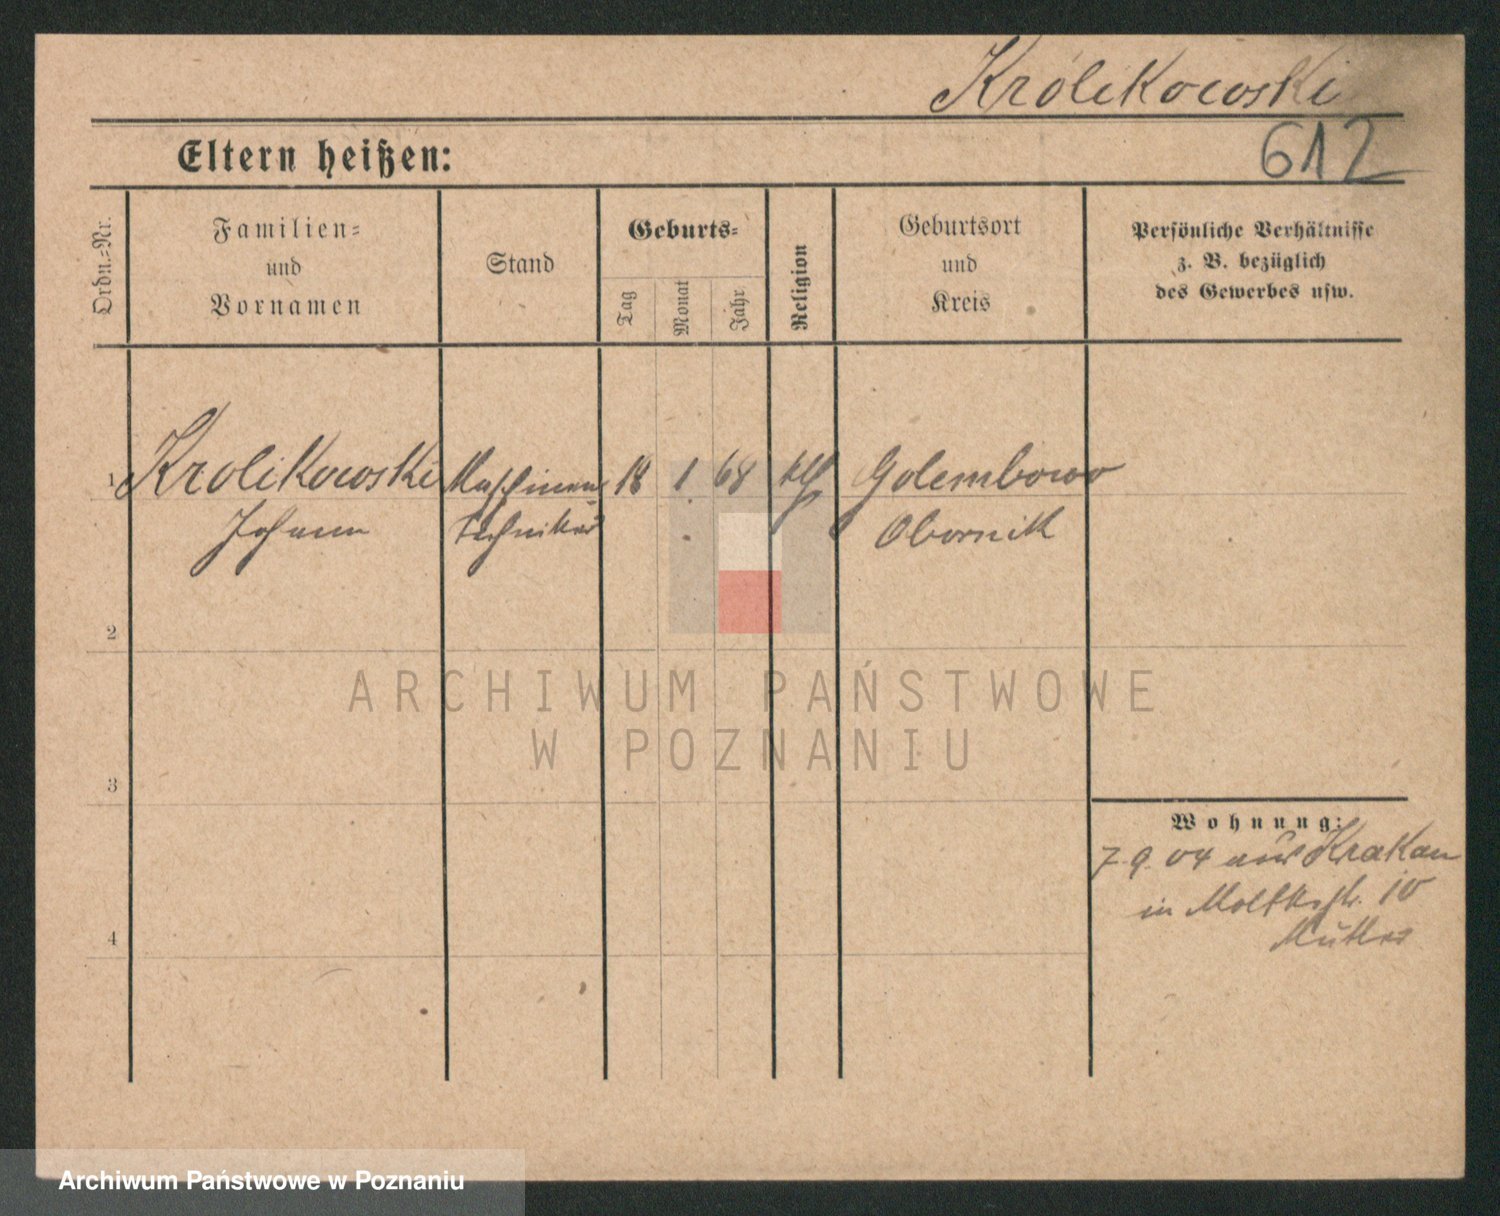 Królikowski
612
Eltern heißen:
Ordn.-Nr.
Familien-
und
Vornamen
Stand
Geburts-
Tag
Monat
Jahr
Religion
Geburtsort
und
Kreis
Persönliche Verhältnisse
z. B. bezüglich
des Gewerbes usw.
1 Krolikowski Maschinen- 18 1 68 kth Golembowo
Johann techniker Obornik
2
3
4
Wohnung:
7.9.04 aus Krakau
in Moltkestr. 10
Mutter
ARCHIWUM PAŃSTWOWE
W POZNANIU
Archiwum Państwowe w Poznaniu